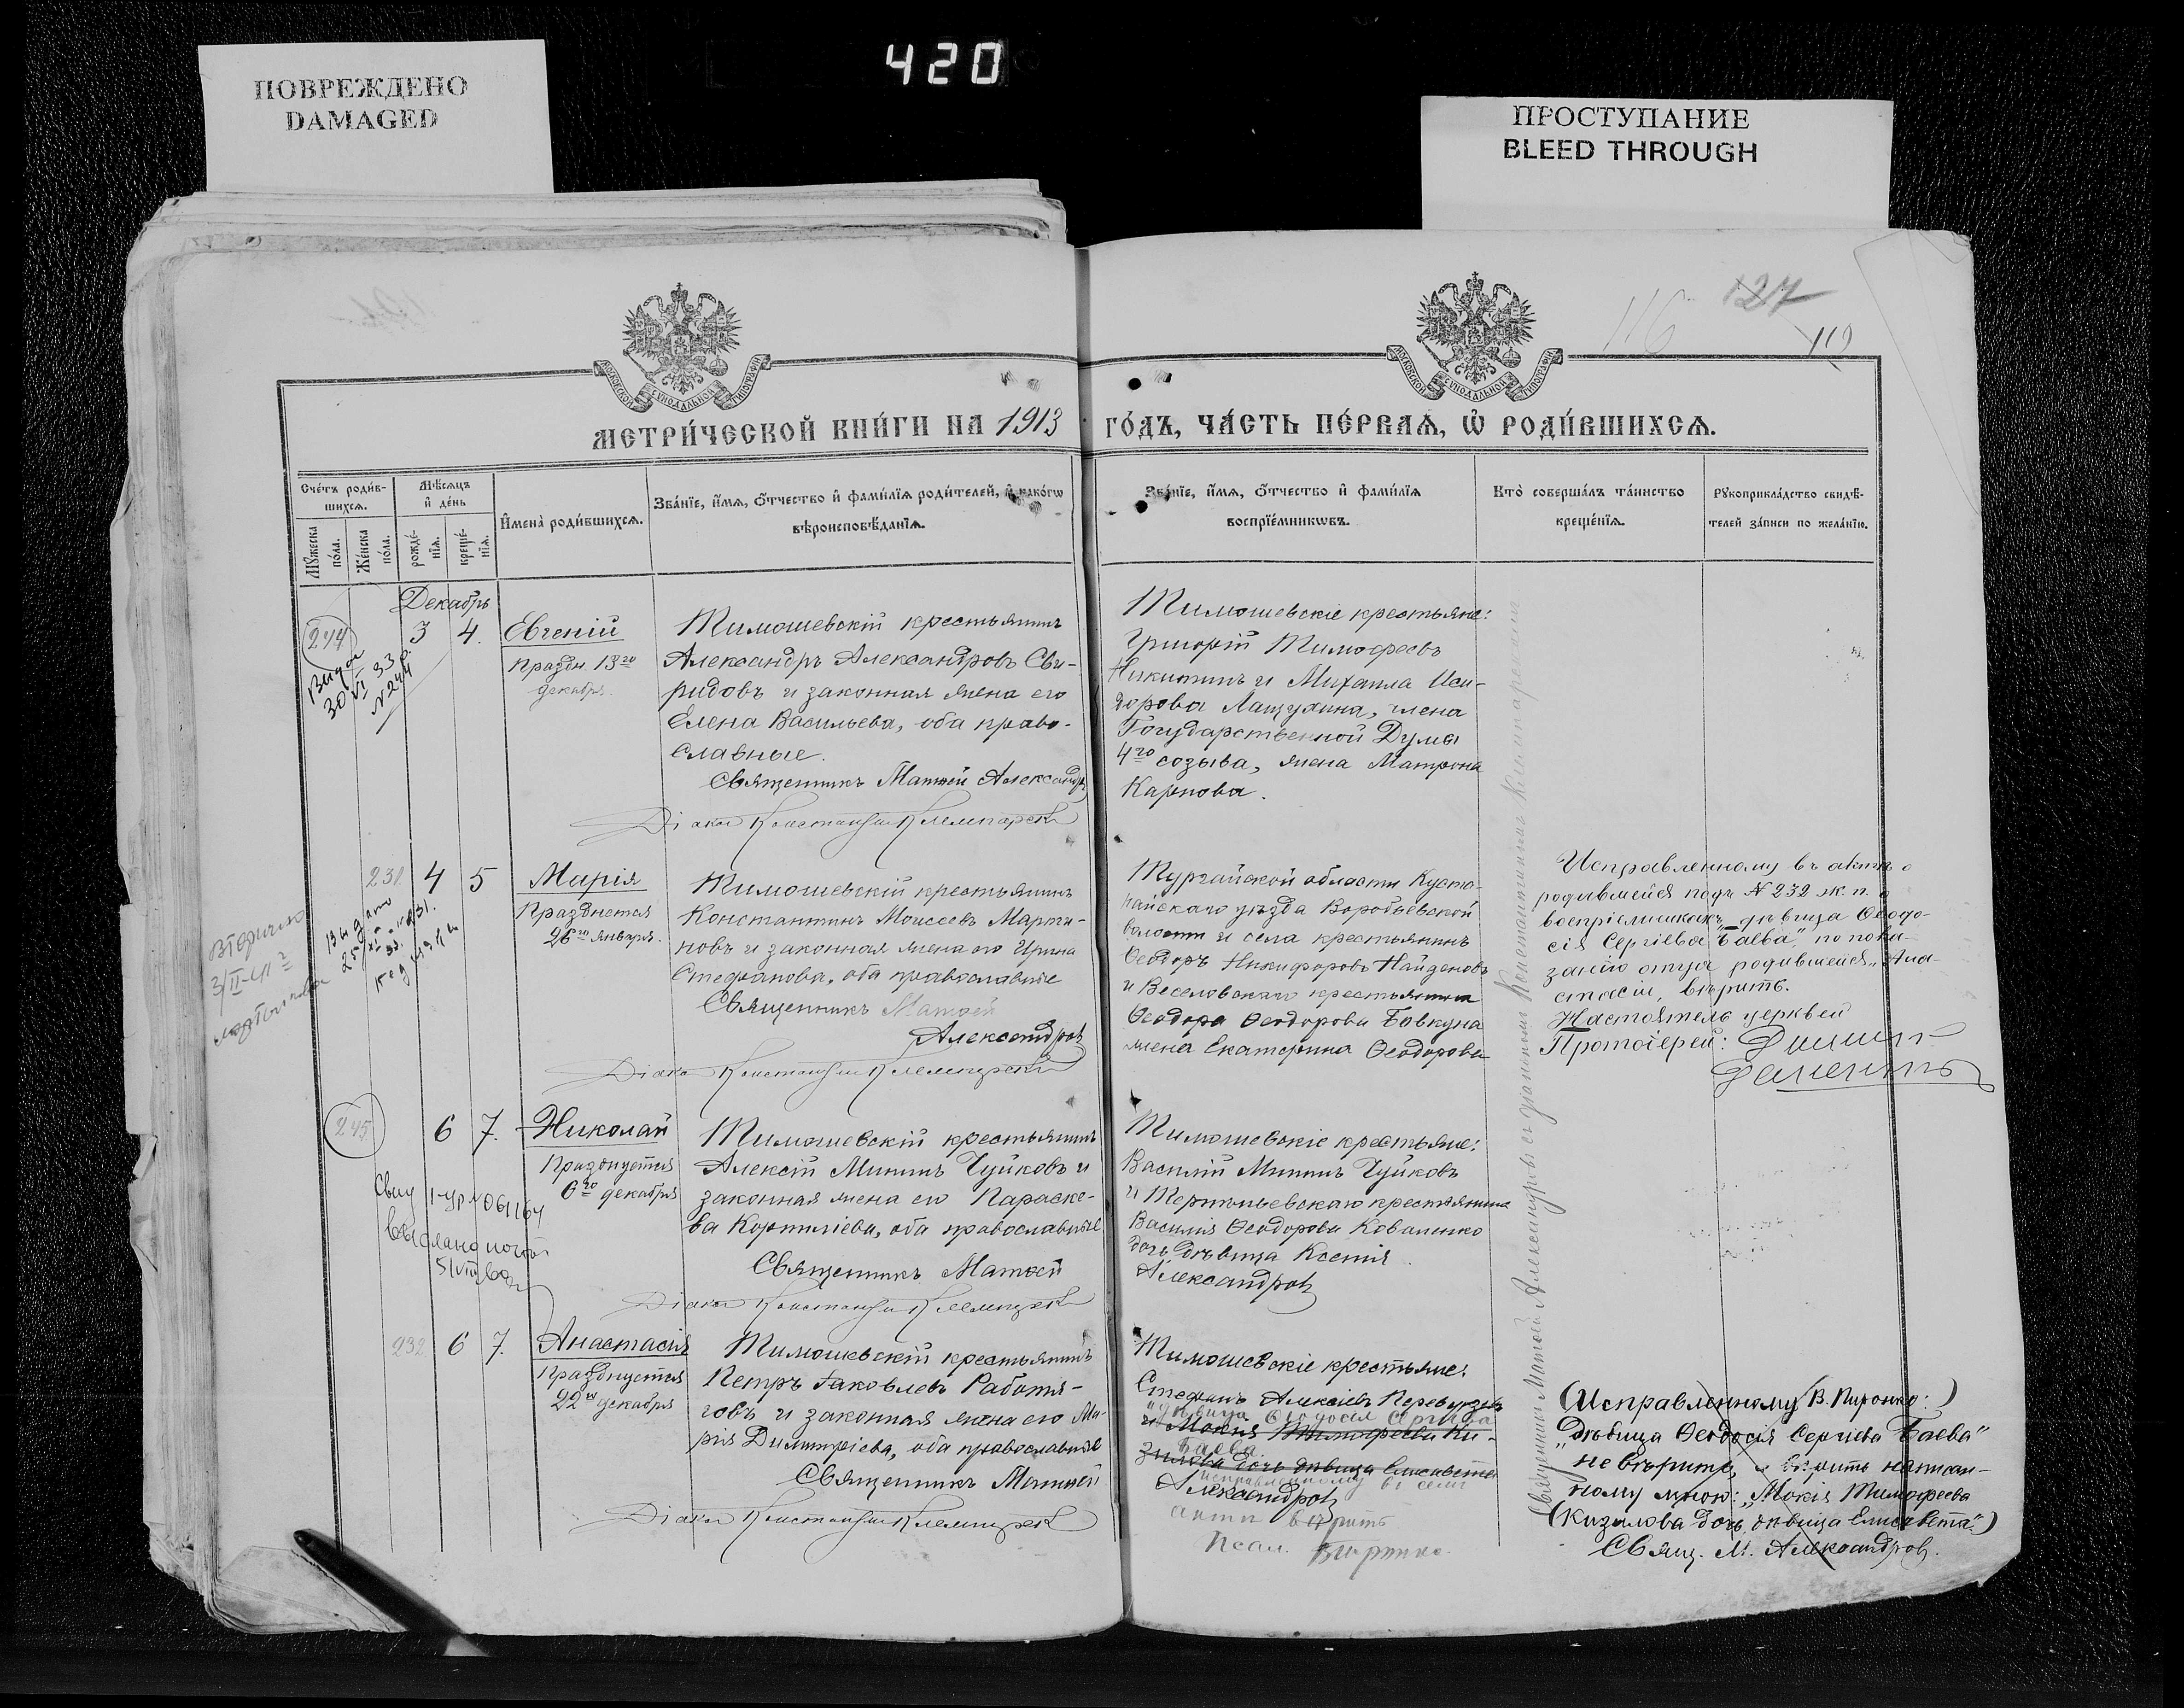 420
ПОВРЕЖДЕНО
DAMAGED
ПРОСТУПАНИЕ
BLEED THROUGH
116
127
МОСКОВСКОЙ СѴНОДАЛЬНОЙ ТИПОГРАФІИ
МОСКОВСКОЙ СѴНОДАЛЬНОЙ ТИПОГРАФІИ
МЕТРИ́ЧЕСКОЙ КНИ́ГИ НА 1913 ГО́ДЪ, ЧА́СТЬ ПЕ́РВАЯ, Ѽ РОДИ́ВШИХСЯ.
Сче́тъ роди́в-
шихся.
Мꙋжеска по́ла.
Же́нска по́ла.
Мѣ́сяцъ и҆ де́нь
рожде́-
нїя.
креще́-
нїя.
И҆мена̀ роди́вшихся.
Зва́нїе, и҆́мя, ѻ҆́тчество и҆ фами́лїя роди́телей, и҆ како́гѡ
вѣроисповѣ́данїя.
Зва́нїе, и҆́мя, ѻ҆́тчество и҆ фами́лїя
воспрїе́мникѡвъ.
Кто̀ соверша́лъ та́инство
креще́нїя.
Рꙋкоприкла́дство свидѣ́-
телей за́писи по жела́нїю.
Декабрь
244
3
4.
Евгеній
Праздн. 13го
декабря.
30 VI 33 г.
№ 244
Тимошевскій крестьянинъ
Александръ Александровъ Сви-
ридовъ и законная жена его
Елена Васильева, оба право-
славные.
Священникъ Матѳей Александровъ
Діаконъ Константинъ Клемпарскій
Тимошевскіе крестьяне:
Григорій Тимофеевъ
Никитинъ и Михаила Иси-
дорова члена
Государственной Думы
4го созыва, жена Матрона
Карпова.
231.
4
5
Марія
Празднется
26го января.
Вторично
Тимошевскій крестьянинъ
Константинъ Моисеевъ Марти-
новъ и законная жена его Ирина
Стефанова, оба православные
Священникъ Матѳей
Александровъ
Діаконъ Константинъ Клемпарскій
Тургайской области Куста-
найскаго уѣзда Воробьевской
волости и села крестьянинъ
Ѳеодоръ Никифоровъ Найденовъ
и Веселовскаго крестьянина
Ѳеодора Ѳеодорова Бовкуна
жена Екатерина Ѳеодорова
Исправленному въ актѣ о
родившейся подъ № 232 ж. п. о
воспріемникахъ „дѣвица Ѳеодо-
сія Сергіева Баева", по пока-
занію отца родившейся „Ана-
стасіи, вѣрить.
Настоятель церквей
Протоіерей:
245
6
7.
Николай
Празднуется
6го декабря
Тимошевскій крестьянинъ
Алексій Мининъ Чуйковъ и
законная жена его Параске-
ва Корниліева, оба православные
Священникъ Матѳей
Діаконъ Константинъ Клемпарскій
Тимошевскіе крестьяне:
Василій Мининъ Чуйковъ
и крестьянина
Василія Ѳеодорова Коваленко
дочь дѣвица Ксенія.
Александровъ
232
6
7.
Анастасія
Празднуется
22го декабря
Тимошевскій крестьянинъ
Петръ Іаковлевъ Работя-
говъ и законная жена его Ма-
рія Димитріева, оба православные
Священникъ Матѳей
Діаконъ Константинъ Клемпарскій
Тимошевскіе крестьяне:
Стефанъ Алексіевъ
и дѣвица Ѳеодосія Сергіева
и Мокія Тимофеева Ки-
Баева.
зилова дочь дѣвица Елисавета
исправленному въ семъ
Александровъ
актѣ вѣрить
Псал.
Священникъ Матѳей Александровъ съ діакономъ Константиномъ Клемпарскимъ
(Исправленному В. Пиронко:)
„дѣвица Ѳеодосія Сергіева Баева"
не вѣрить, а вѣрить написан-
ному мною: „Мокія Тимофеева
(Кизилова дочь, дѣвица Елисавета")
Свящ. М. Александровъ.